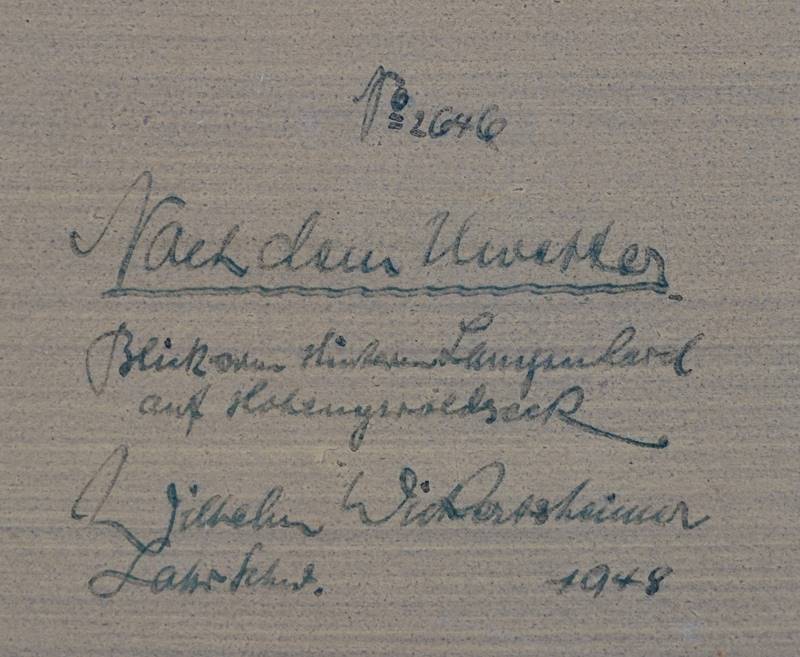 No 2646
Nach dem Unwetter
Blick vom Hinteren Langenhard
auf Hohengeroldseck
Wilhelm Wickertsheimer
Lahr Schw. 1948